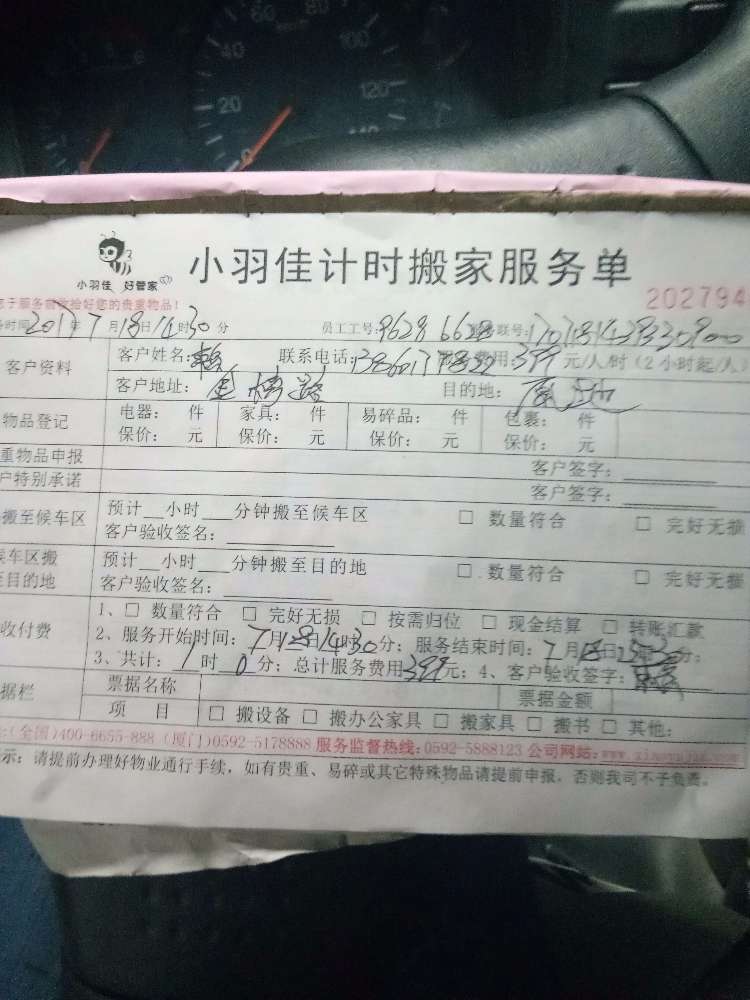 40
60
80
100
20
120
0
小羽佳 好管家
小羽佳计时搬家服务单
202794
于服务前收捡好您的贵重物品！
时间:2017年7月18日14时30分 员工工号:9629 6628 联号:
客户资料
客户姓名:赖 联系电话: 费用:399元/人/时(2小时起/人)
客户地址: 目的地:
物品登记
电器: 件 家具: 件 易碎品: 件 包裹: 件
保价: 元 保价: 元 保价: 元 保价: 元
重物品申报 客户签字:
户特别承诺 客户签字:
搬至候车区
预计__小时___分钟搬至候车区 □ 数量符合 □ 完好无损
客户验收签名:
候车区搬
至目的地
预计__小时___分钟搬至目的地 □ 数量符合 □ 完好无损
客户验收签名:
收付费
1、□ 数量符合 □ 完好无损 □ 按需归位 □ 现金结算 □ 转账汇款
2、服务开始时间:7月18日14时30分; 服务结束时间:7月18日 时30分;
3、共计:1时0分; 总计服务费用399元; 4、客户验收签字:
据栏
票据名称 票据金额
项 目 □ 搬设备 □ 搬办公家具 □ 搬家具 □ 搬书 □ 其他:
:(全国)400-6655-888 (厦门)0592-5178888 服务监督热线:0592-5888123 公司网站:
示: 请提前办理好物业通行手续, 如有贵重、易碎或其它特殊物品请提前申报, 否则我司不予负责。